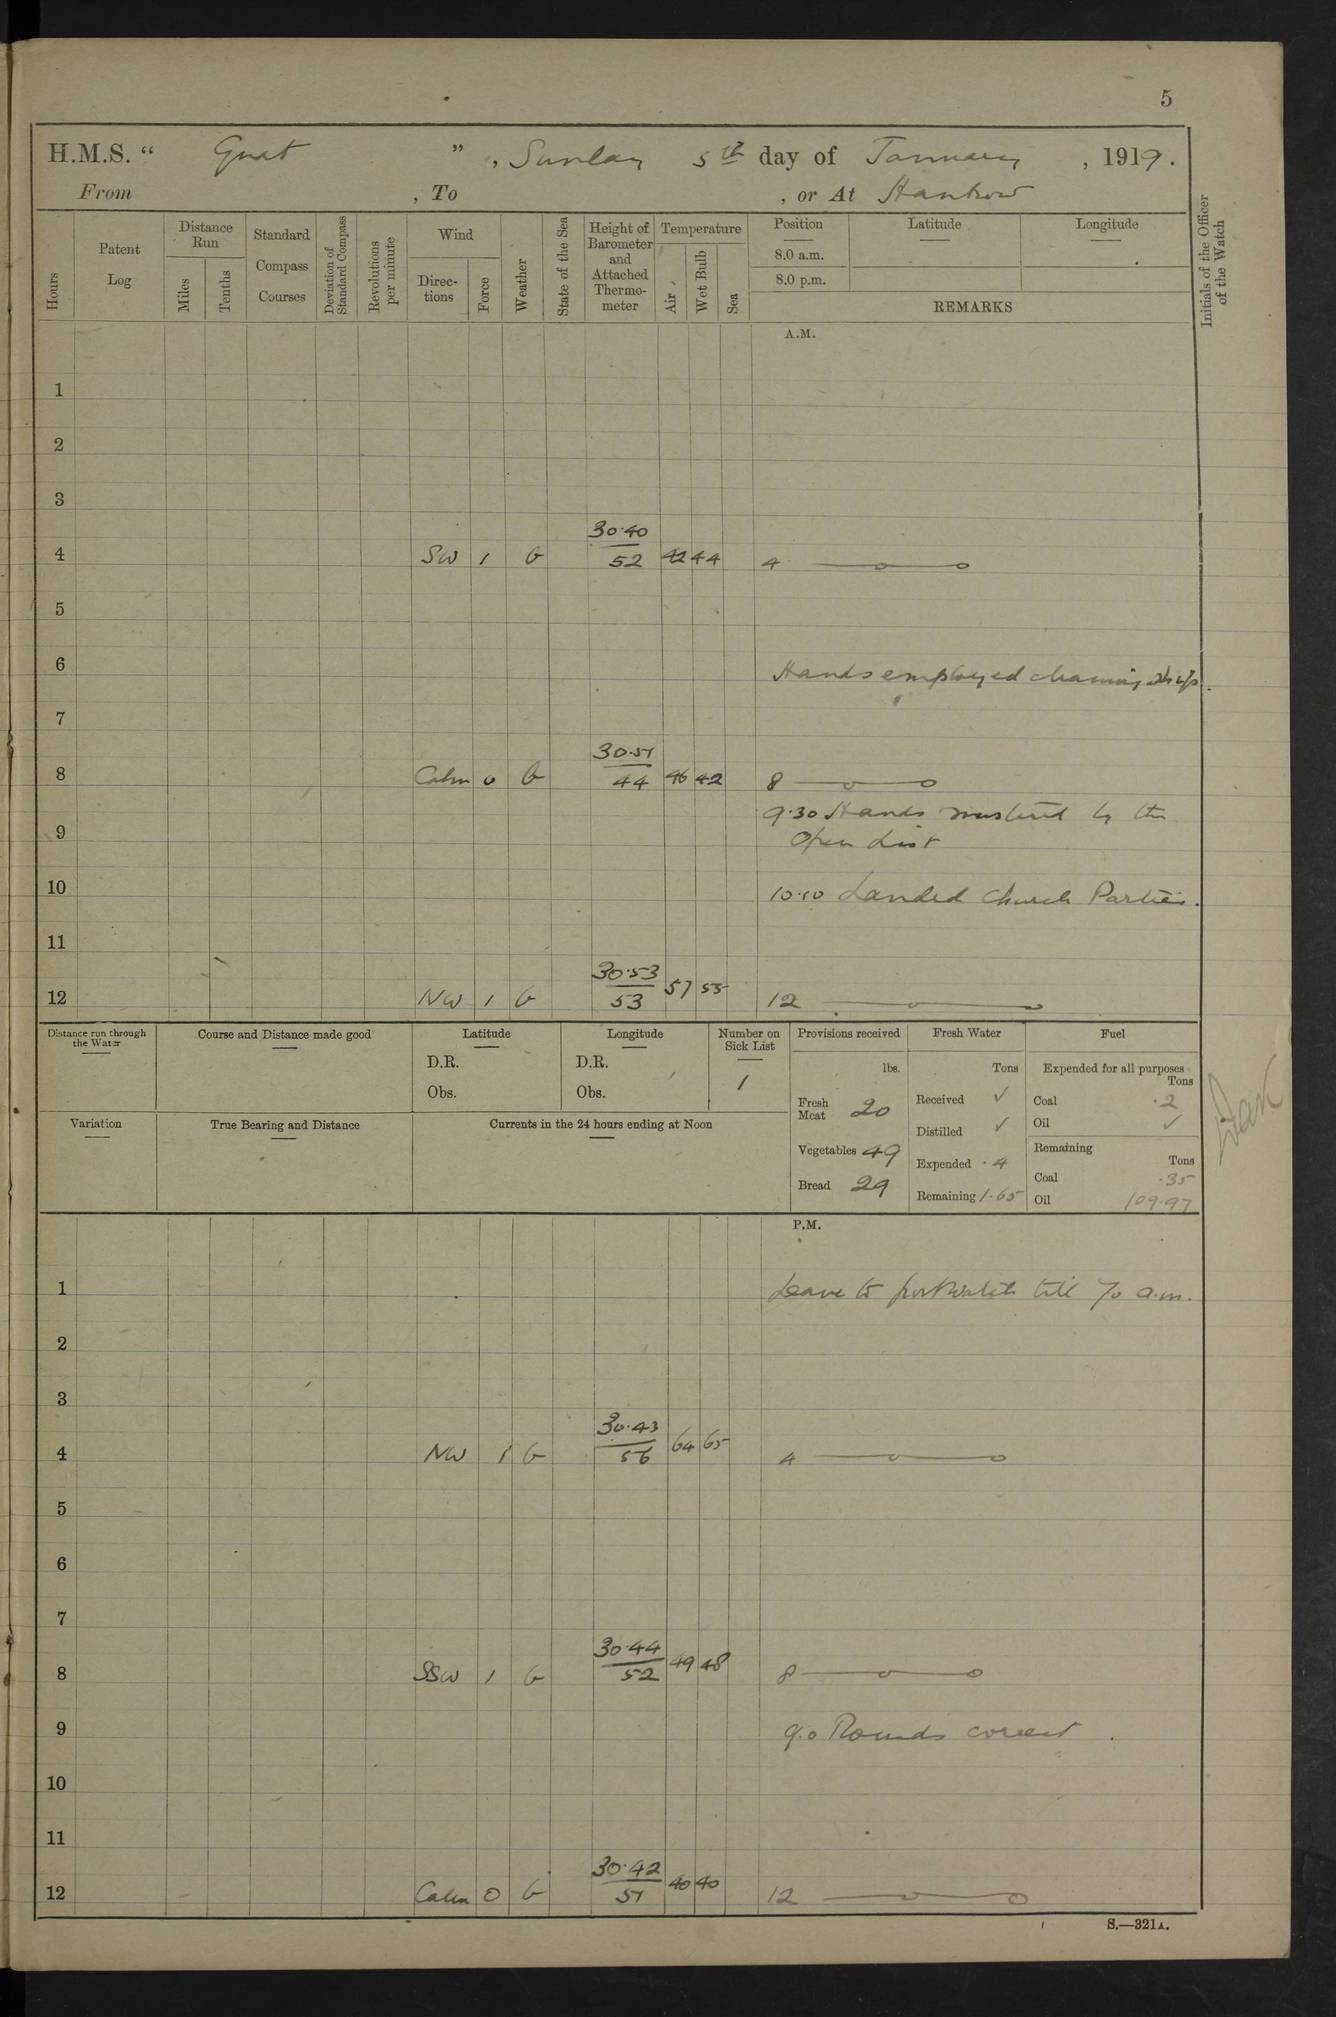 5
H.M.S. " Gnat ", Sunday 5th day of January, 1919.
From , To , or At Hankow
Hours
Patent Log
Distance Run
Miles
Tenths
Standard Compass Courses
Deviation of Standard Compass
Revolutions per minute
Wind
Directions
Force
Weather
State of the Sea
Height of Barometer and Attached Thermometer
Temperature
Air
Wet Bulb
Sea
Position
8.0 a.m.
8.0 p.m.
Latitude
Longitude
REMARKS
Initials of the Officer of the Watch
A.M.
1
2
3
30.40
4 SW 1 b 52 42 44 4
5
6 Hands employed cleaning ship.
7
30.51
8 Calm 0 b 44 46 42 8
9.30 Hands mustered by the
9 Open List
10 10.10 Landed Church Parties.
11
30.53
12 NW 1 b 53 57 55 12
Distance run through the Water
Course and Distance made good
Latitude
D.R.
Obs.
Longitude
D.R.
Obs.
Number on Sick List
1
Provisions received
lbs.
Fresh Meat 20
Vegetables 49
Bread 29
Fresh Water
Tons
Received ✓
Distilled ✓
Expended .4
Remaining 1.65
Fuel
Expended for all purposes
Tons
Coal .2
Oil ✓
Remaining
Tons
Coal .35
Oil 109.97
Variation
True Bearing and Distance
Currents in the 24 hours ending at Noon
P.M.
1 Leave to port watch till 7.0 a.m.
2
3
30.43
4 NW 1 b 56 64 65 4
5
6
7
30.44
8 SSW 1 b 52 49 48 8
9 9.0 Rounds correct.
10
11
30.42
12 Calm 0 b 51 40 40 12
S.—321A.